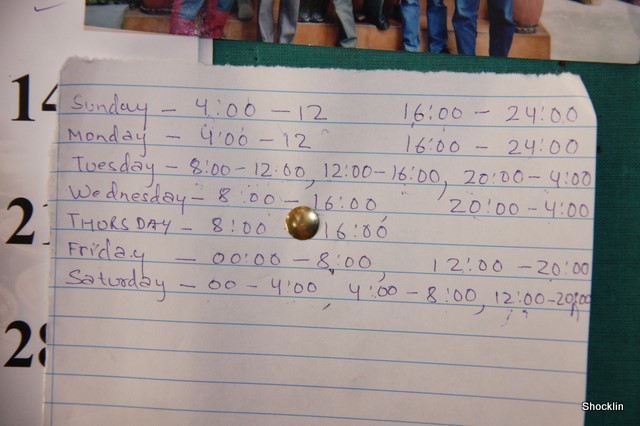 14
Sunday - 4:00 - 12 16:00 - 24:00
Monday - 4:00 - 12 16:00 - 24:00
Tuesday - 8:00 - 12:00, 12:00 - 16:00, 20:00 - 4:00
Wednesday - 8:00 - 16:00 20:00 - 4:00
21
THURSDAY - 8:00 16:00
Friday - 00:00 - 8:00, 12:00 - 20:00
Saturday - 00 - 4:00 4:00 - 8:00, 12:00 - 20:00
28
Shocklin